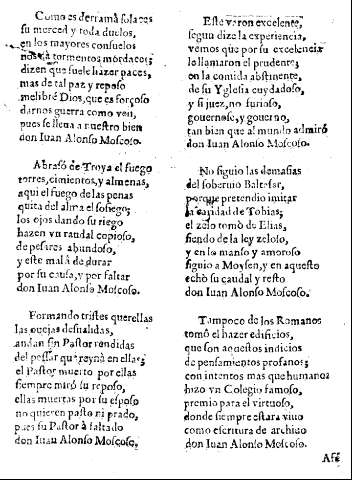 Como es derramâ solaces
su merced y toda duelos,
en los mayores consuelos
nos dà tormentos mordaces;
dizen que suele hazer paces,
mas de tal paz y reposo
me libré Dios, que es forçoso
darnos guerra como ven,
pues se lleua a nuestro bien
don Iuan Alonso Moscoso.
Abrasó de Troya el fuego
torres, cimientos, y almenas,
aqui el fuego de las penas
quita del alma el sosiego;
los ojos dando su riego
hazen vn raudal copioso,
de pesares abundoso,
y este malâ de durar
por su causa, y por faltar
don Iuan Alonso Moscoso.
Formando tristes querellas
las ouejas desualidas,
andan sin Pastor rendidas
del pessar que reyna en ellas;
el Pastor muerto por ellas
siempre miró su reposo,
ellas muertas por su esposo
no quieren pasto ni prado,
pues su Pastor â faltado
don Iuan Alonso Moscoso.
Este varon excelente,
segun dize la experiencia,
vemos que por su excelencia
le llamaron el prudente;
en la comida abstinente,
de su Yglesia cuydadoso,
y si juez, no furioso,
gouernose, y gouerno,
tan bien que al mundo admiró
don Iuan Alonso Moscoso.
No siguio las demasias
del soberuio Baltasar,
porque pretendio imitar
la caridad de Tobias;
el zelo tomó de Elias,
siendo de la ley zeloso,
y en lo manso y amoroso
siguio a Moysen, y en aquesto
echò su caudal y resto
don Iuan Alonso Moscoso.
Tampoco de los Romanos
tomô el hazer edificios,
que son aquestos indicios
de pensamientos profanos;
con intentos mas que humanos
hizo vn Colegio famoso,
premio para el virtuoso,
donde siempre estarà viuo
como escritura de archiuo
don Iuan Alonso Moscoso.